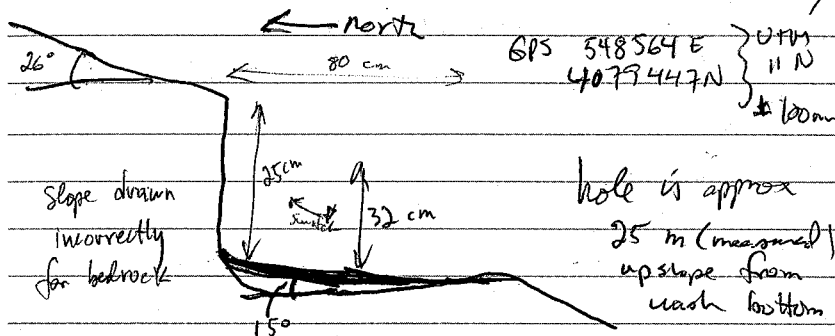 north
GPS 548564 E
4079447N
UTM
11 N
± 100m
26°
80 cm
25cm
32 cm
Slope drawn
incorrectly
for bedrock
15°
hole is approx
25 m (measured)
upslope from
wash bottom